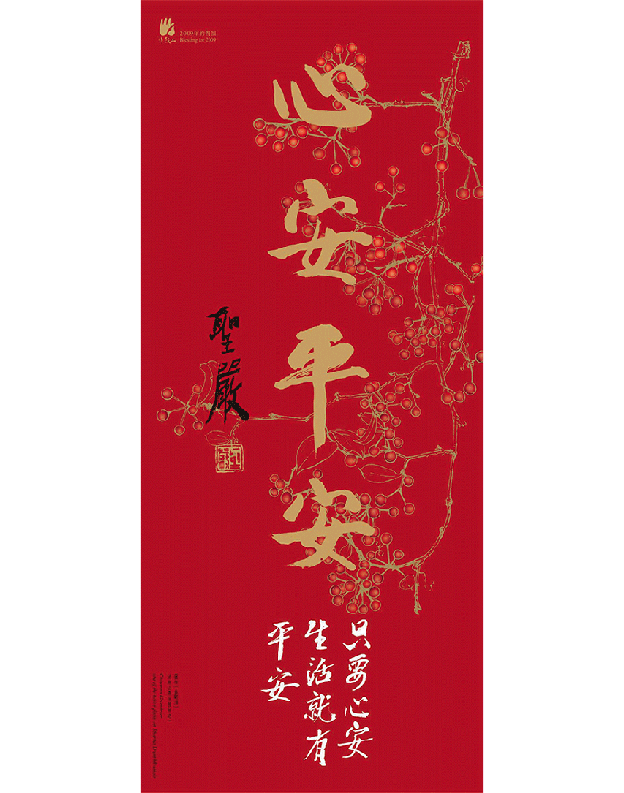 法鼓山
2009年的祝福
Blessing for 2009
心安平安
聖嚴
只要心安
生活就有
平安